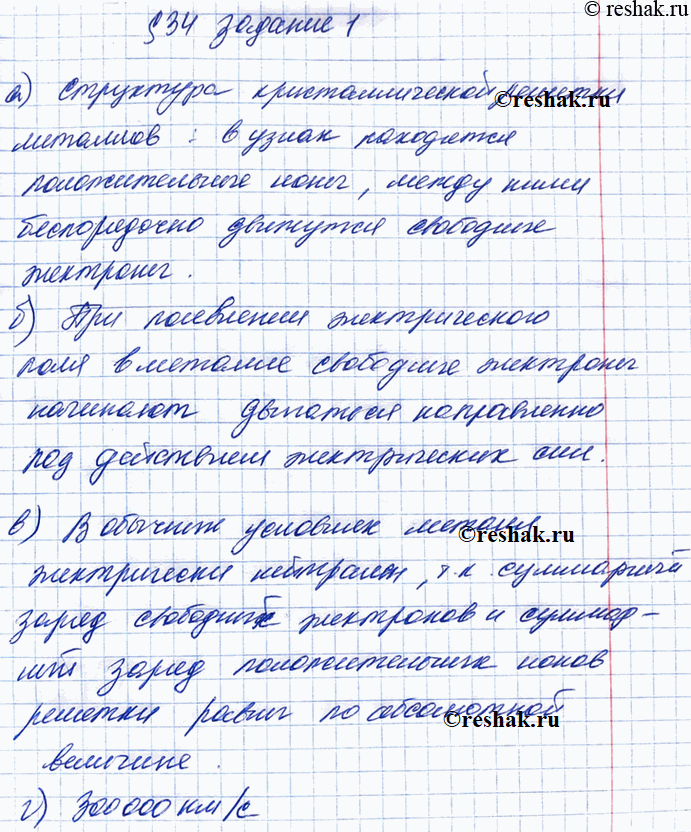 © reshak.ru
§34 задание 1
а) структура кристаллической решетки
©reshak.ru
металлов : в узлах находятся
положительные ионы, между ними
беспорядочно движутся свободные
электроны.
б) При появлении электрического
поля в металле свободные электроны
начинают двигаться направленно
под действием электрических сил.
в) В обычных условиях металл
©reshak.ru
электрически нейтрален, т.к. суммарный
заряд свободных электронов и суммар-
ный заряд положительных ионов
решетки равны по абсолютной
©reshak.ru
величине.
г) 300000 км/с